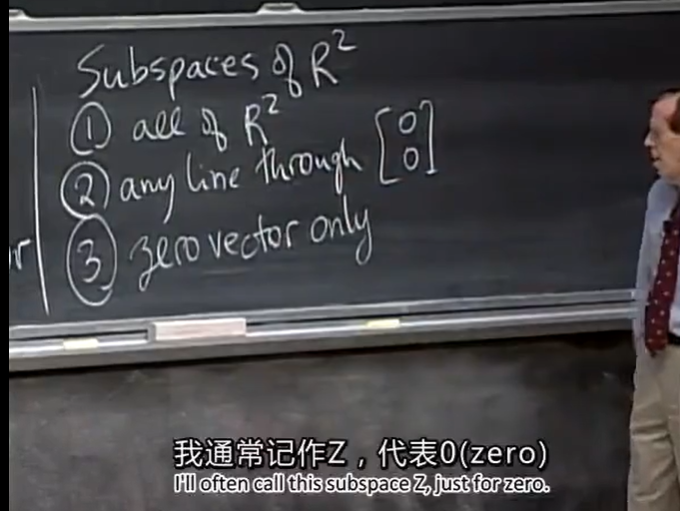 Subspaces of R²
① all of R²
② any line through [0 0]
③ zero vector only
我通常记作Z，代表0(zero)
I'll often call this subspace Z, just for zero.